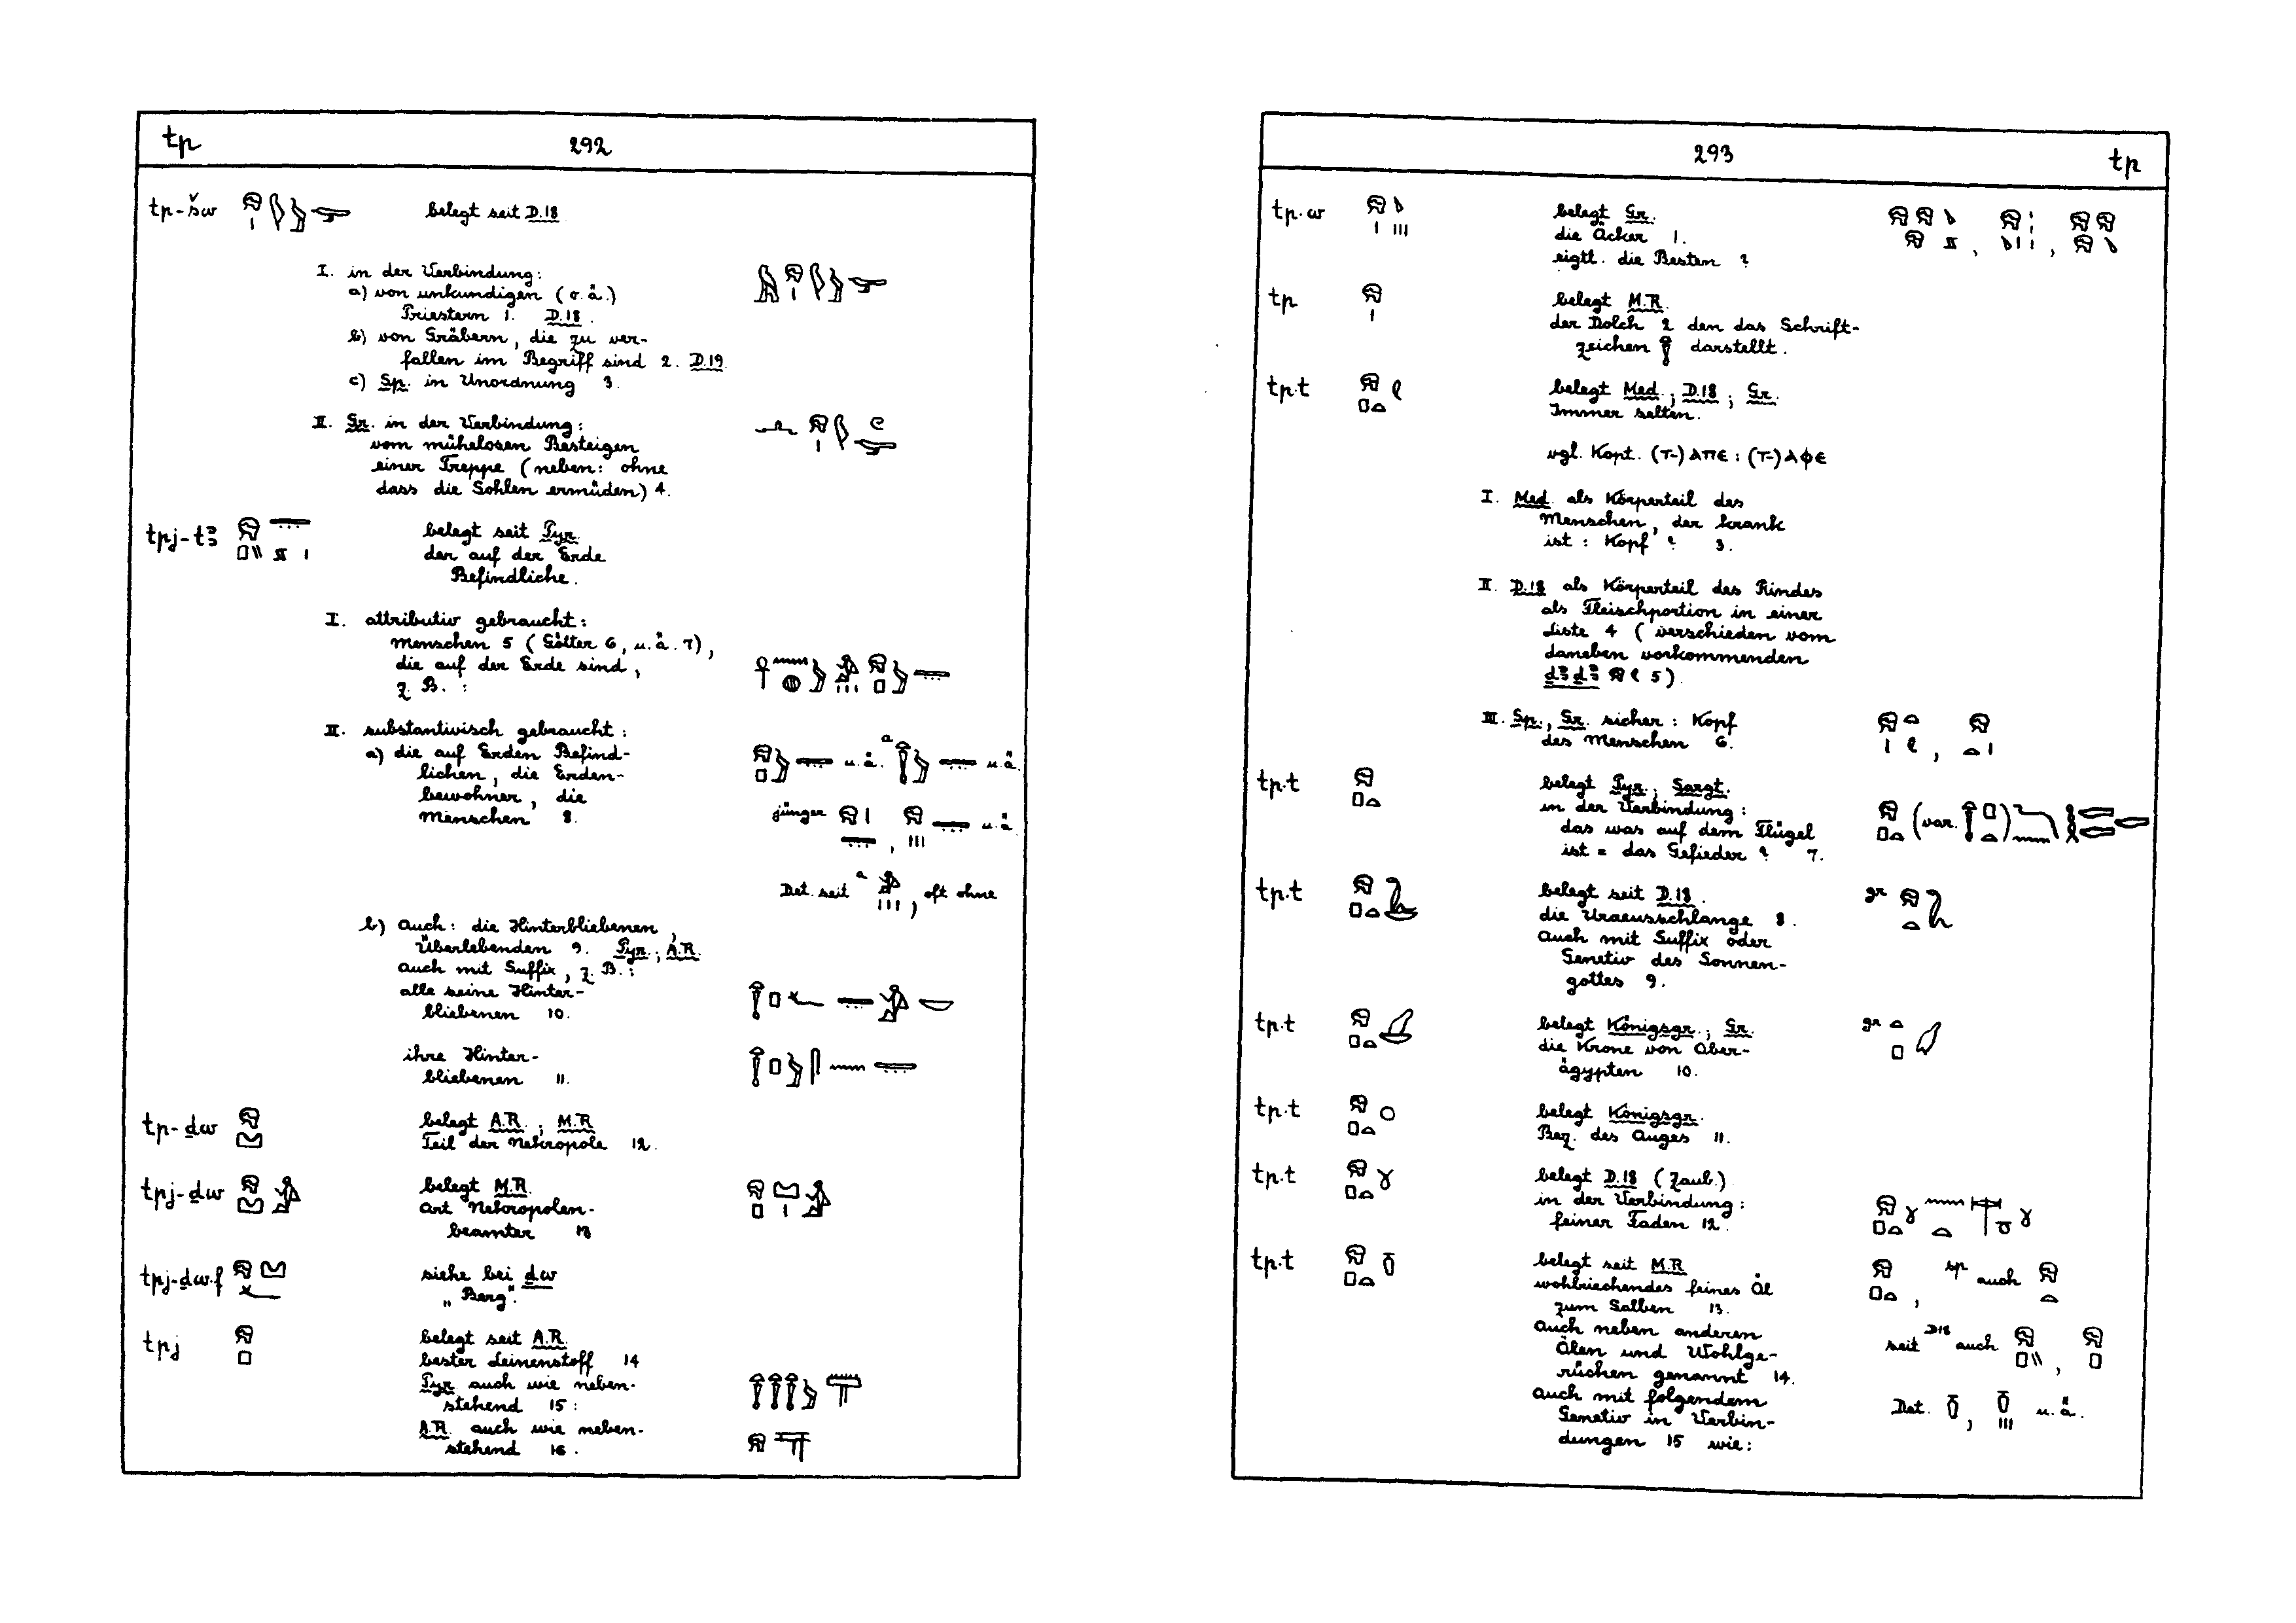 tp 292
tp-šw belegt seit D.18
I. in der Verbindung:
a) von unkundigen (o.ä.)
Priestern 1. D.18.
b) von Gräbern, die zu ver-
fallen im Begriff sind 2. D.19
c) Sp. in Unordnung 3.
II. Gr. in der Verbindung:
vom mühelosen Besteigen
einer Treppe (neben: ohne
dass die Sohlen ermüden) 4.
tpj-tꜣ belegt seit Pyr.
der auf der Erde
Befindliche.
I. attributiv gebraucht:
Menschen 5 (Götter 6, u.ä. 7),
die auf der Erde sind,
z. B.:
II. substantivisch gebraucht:
a) die auf Erden Befind- u.ä. a u.ä.
lichen, die Erden-
bewohner, die
Menschen 8. jünger , u.ä.
Det. seit a , oft ohne
b) Auch: die Hinterbliebenen,
Überlebenden 9. Pyr.; A.R.
Auch mit Suffix, z. B.:
alle seine Hinter-
bliebenen 10.
ihre Hinter-
bliebenen 11.
tp-ḏw belegt A.R.; M.R.
Teil der Nekropole 12.
tpj-ḏw belegt M.R.
Art Nekropolen-
beamter 13
tpj-ḏw.f siehe bei ḏw
„Berg".
tpj belegt seit A.R.
bester Leinenstoff 14
Pyr. auch wie neben-
stehend 15:
A.R. auch wie neben-
stehend 16.
293 tp
tp.w belegt Gr.
die Äcker 1. , ,
eigtl. die Besten ?
tp belegt M.R.
der Dolch 2 den das Schrift-
zeichen darstellt.
tp.t belegt Med.; D.18; Gr.
Immer selten.
vgl. Kopt. (ⲧ-)ⲁⲡⲉ : (ⲧ-)ⲁⲫⲉ
I. Med. als Körperteil des
Menschen, der krank
ist: Kopf ? 3.
II. D.18 als Körperteil des Rindes
als Fleischportion in einer
Liste 4 (verschieden vom
daneben vorkommenden
ḏꜣḏꜣ 5).
III. Sp., Gr. sicher: Kopf
des Menschen 6. ,
tp.t belegt Pyr.; Sargt.
in der Verbindung: (var. )
das was auf dem Flügel
ist = das Gefieder ? 7.
tp.t belegt seit D.18. gr
die Uraeusschlange 8.
Auch mit Suffix oder
Genetiv des Sonnen-
gottes 9.
tp.t belegt Königsgr.; Gr. gr
die Krone von Ober-
ägypten 10.
tp.t belegt Königsgr.
Bez. des Auges 11.
tp.t belegt D.18 (Zaub.)
in der Verbindung:
feiner Faden 12.
tp.t belegt seit M.R.
wohlriechendes feines Öl , sp auch
zum Salben 13.
Auch neben anderen
Ölen und Wohlge- seit D18 auch ,
rüchen genannt 14.
Auch mit folgendem
Genetiv in Verbin- Det. , u.ä.
dungen 15 wie: